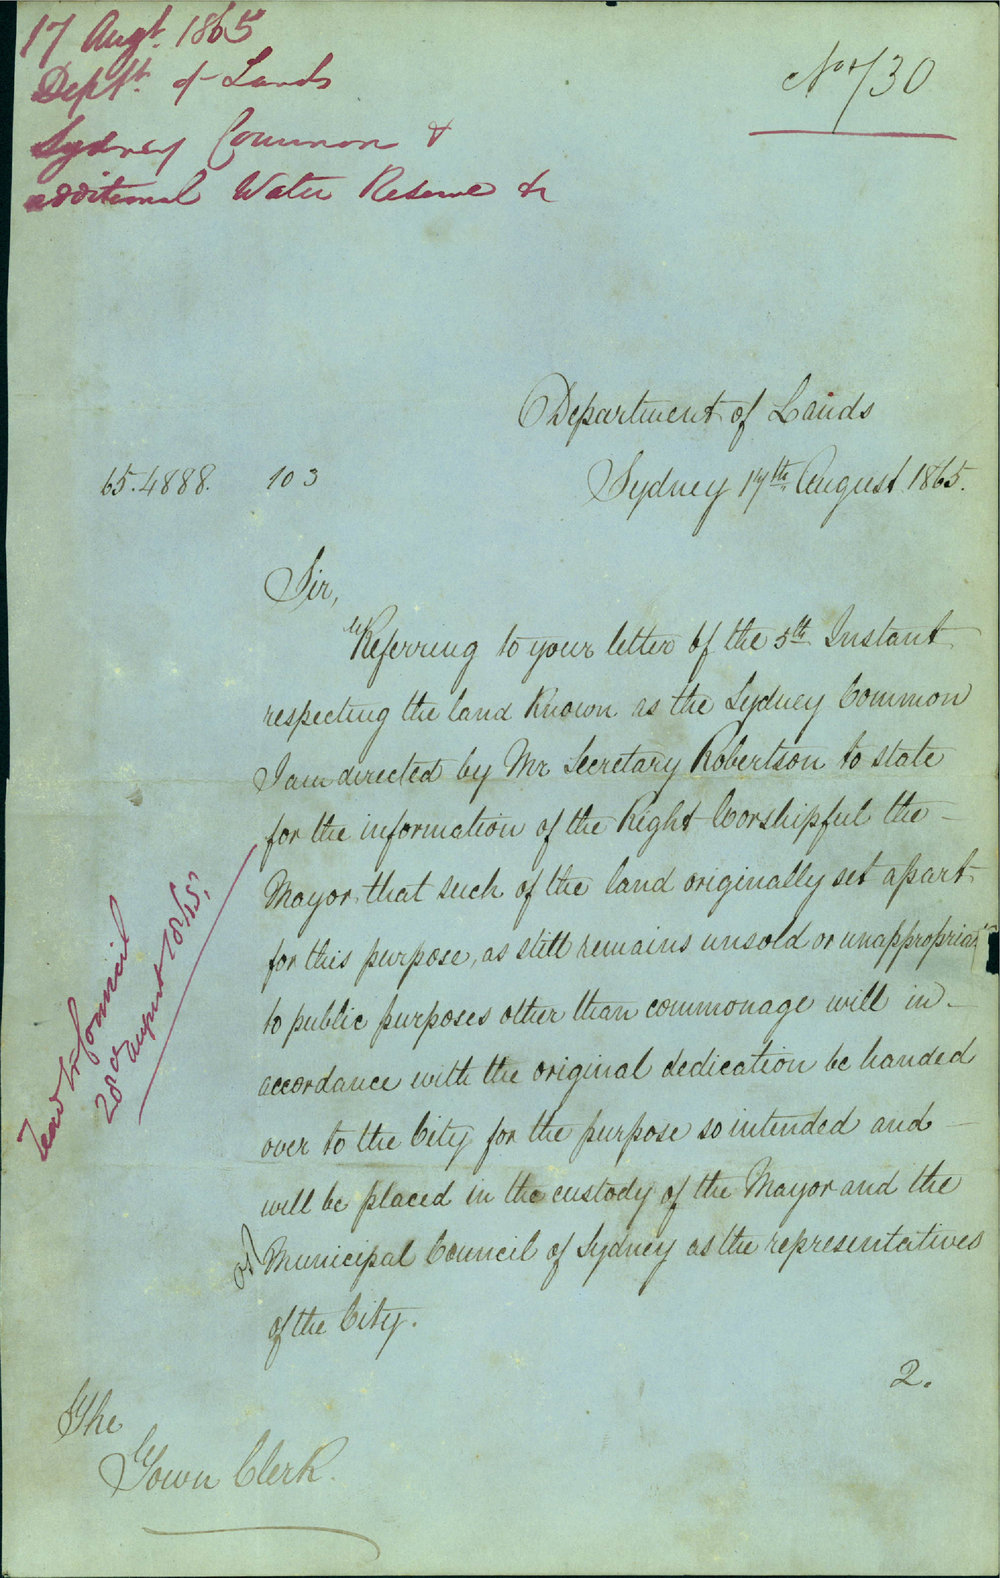 17 Augt. 1865
Deptt. of Lands
Sydney Common &
additional Water Reserve &c
No 730
Department of Lands
65.4888. 103
Sydney 17th August 1865.
Sir,
Referring to your letter of the 5th Instant
respecting the land known as the Sydney Common
I am directed by Mr Secretary Robertson to state
for the information of the Right Worshipful the
Mayor, that such of the land originally set apart
for this purpose, as still remains unsold or unappropriated
to public purposes other than commonage will in
accordance with the original dedication be handed
over to the City for the purpose so intended and
will be placed in the custody of the Mayor and the
Municipal Council of Sydney as the representatives
of the City.
2.
The
Town Clerk.
Read in Council
28th August 1865.